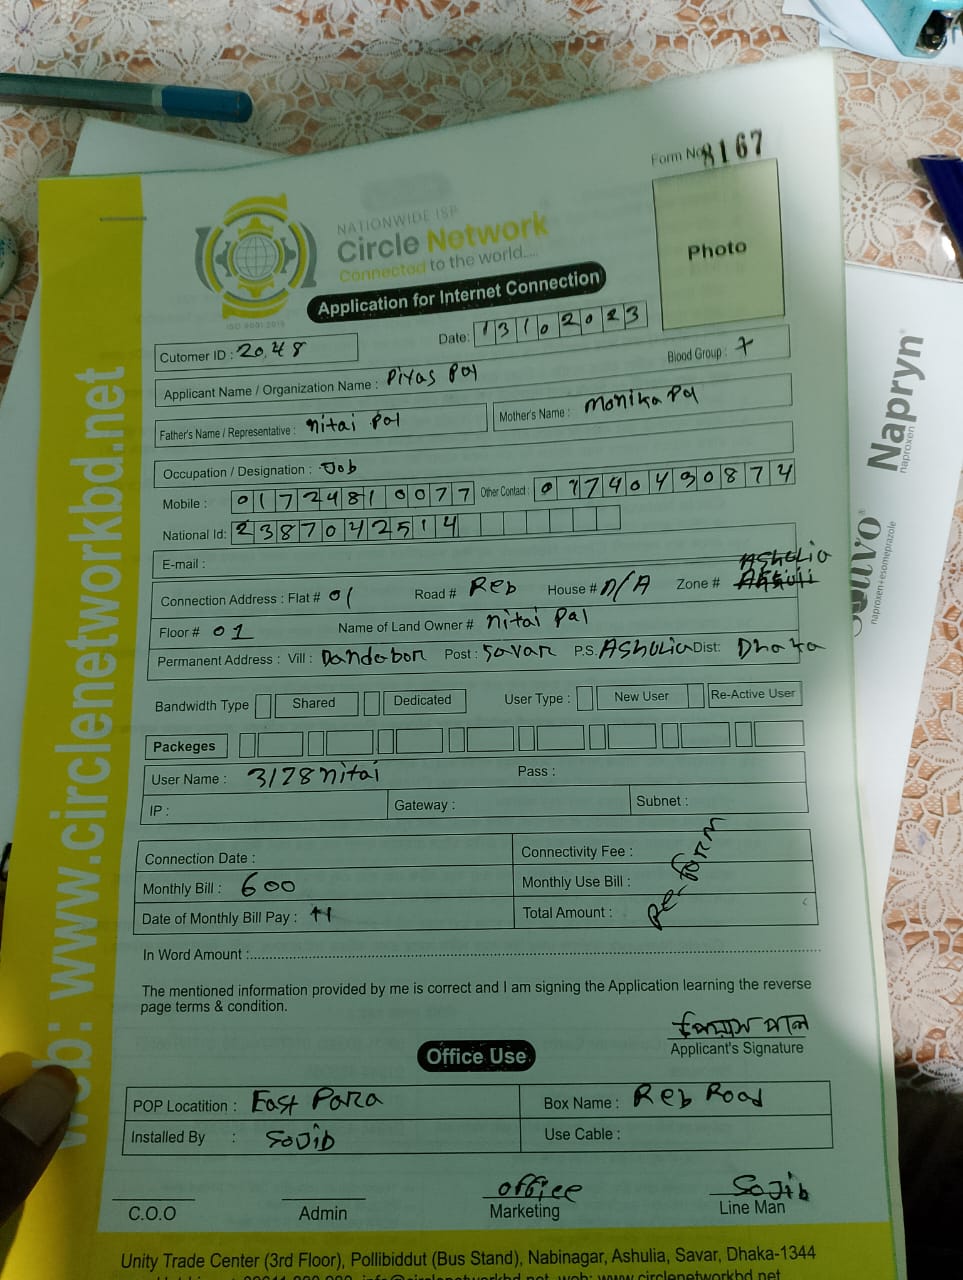 Form No. 8167
NATIONWIDE ISP
Circle Network
Connected to the world....
ISO 9001:2015
Photo
Application for Internet Connection
Cutomer ID : 2048
Date: 13102023
Applicant Name / Organization Name : Piyas Pal
Blood Group : +
Father's Name / Representative : nitai Pal
Mother's Name : Monika Pal
Occupation / Designation : Job
Mobile : 01724810077 Other Contact : 01740490874
National Id: 2387042514
E-mail :
Connection Address : Flat # 01 Road # Reb House # N/A Zone # Ashulia
Floor # 01 Name of Land Owner # nitai Pal
Permanent Address : Vill : Dandabor Post : Savar P.S. Ashulia Dist: Dhaka
Bandwidth Type Shared Dedicated User Type : New User Re-Active User
Packeges
User Name : 3128nitai Pass :
IP : Gateway : Subnet :
Connection Date : Connectivity Fee :
Monthly Bill : 600 Monthly Use Bill :
Date of Monthly Bill Pay : Total Amount :
Re-form
In Word Amount :
The mentioned information provided by me is correct and I am signing the Application learning the reverse
page terms & condition.
Applicant's Signature
Office Use
POP Locatition : East Para Box Name : Reb Road
Installed By : Sojib Use Cable :
office Sojib
C.O.O Admin Marketing Line Man
Unity Trade Center (3rd Floor), Pollibiddut (Bus Stand), Nabinagar, Ashulia, Savar, Dhaka-1344
web: www.circlenetworkbd.net
web: www.circlenetworkbd.net
Napryn
naproxen
naproxen+esomeprazole